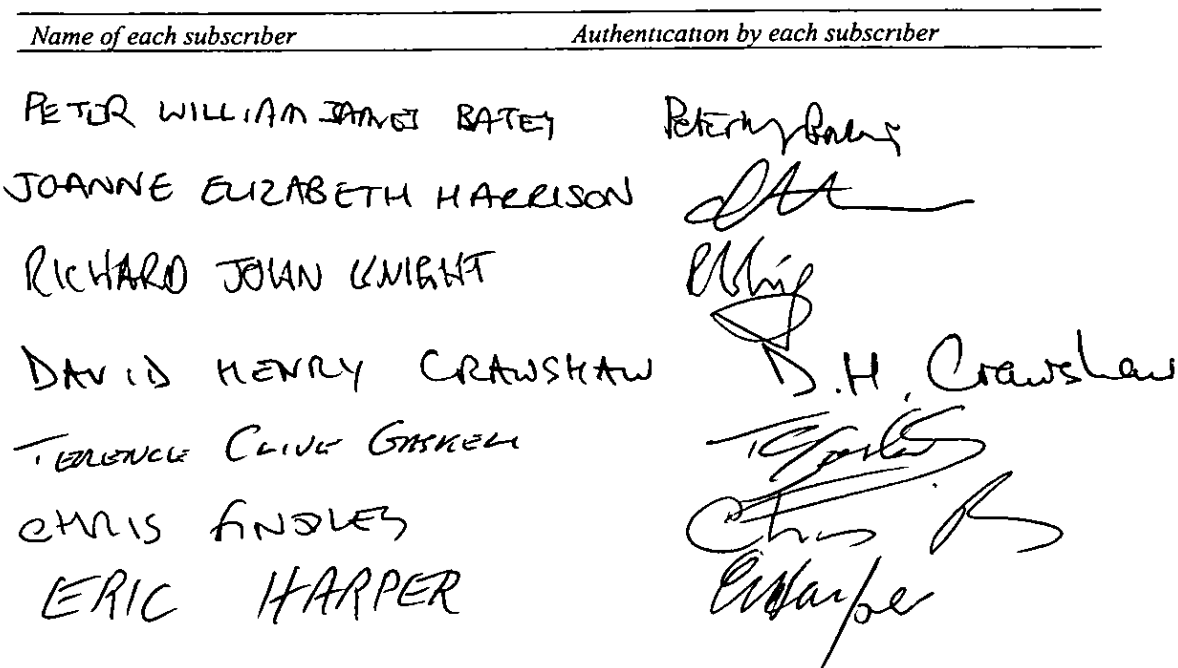 Name of each subscriber Authentication by each subscriber
PETER WILLIAM JAMES BATEY
JOANNE ELIZABETH HARRISON
RICHARD JOHN KNIGHT
DAVID HENRY CRAWSHAW D.H. Crawshaw
TERENCE CLIVE GASKELL
CHRIS FINDLEY Chris
ERIC HARPER E Harper